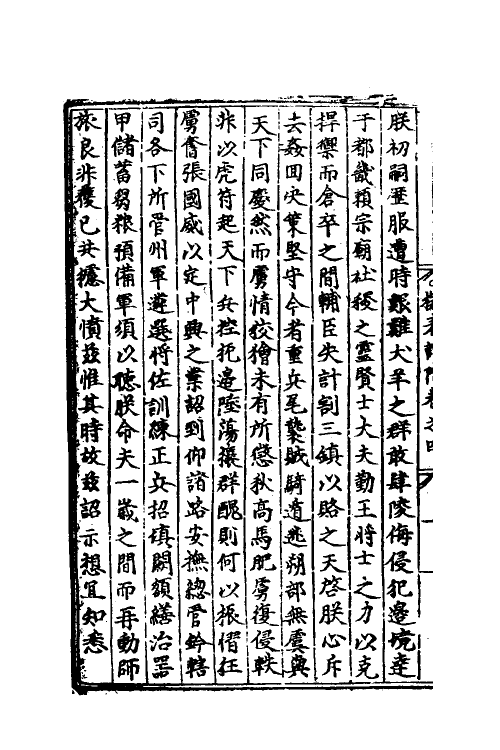 朕初嗣歷服遭時艱難犬羊之群敢肆陵侮侵犯邊境達
于都畿賴宗廟社稷之靈賢士大夫勤王將士之力以克
捍禦而倉卒之間輔臣失計割三鎮以賂之天啓朕心斥
去姦回決策堅守今者重兵尾襲賊騎遁逃朔部無虞與
天下同慶然而虜情狡獪未有所懲秋高馬肥虜復侵軼
非以虎符起天下兵控扼邊陲蕩攘群醜則何以振慴狂
虜奮張國威以定中興之業詔到仰諸路安撫總管鈐轄
司各下所管州軍遴選將佐訓練正兵招填闕額繕治器
甲儲蓄芻粮預備軍須以聽朕命夫一歲之間而再動師
旅良非獲已共攄大憤茲惟其時故茲詔示想宜知悉